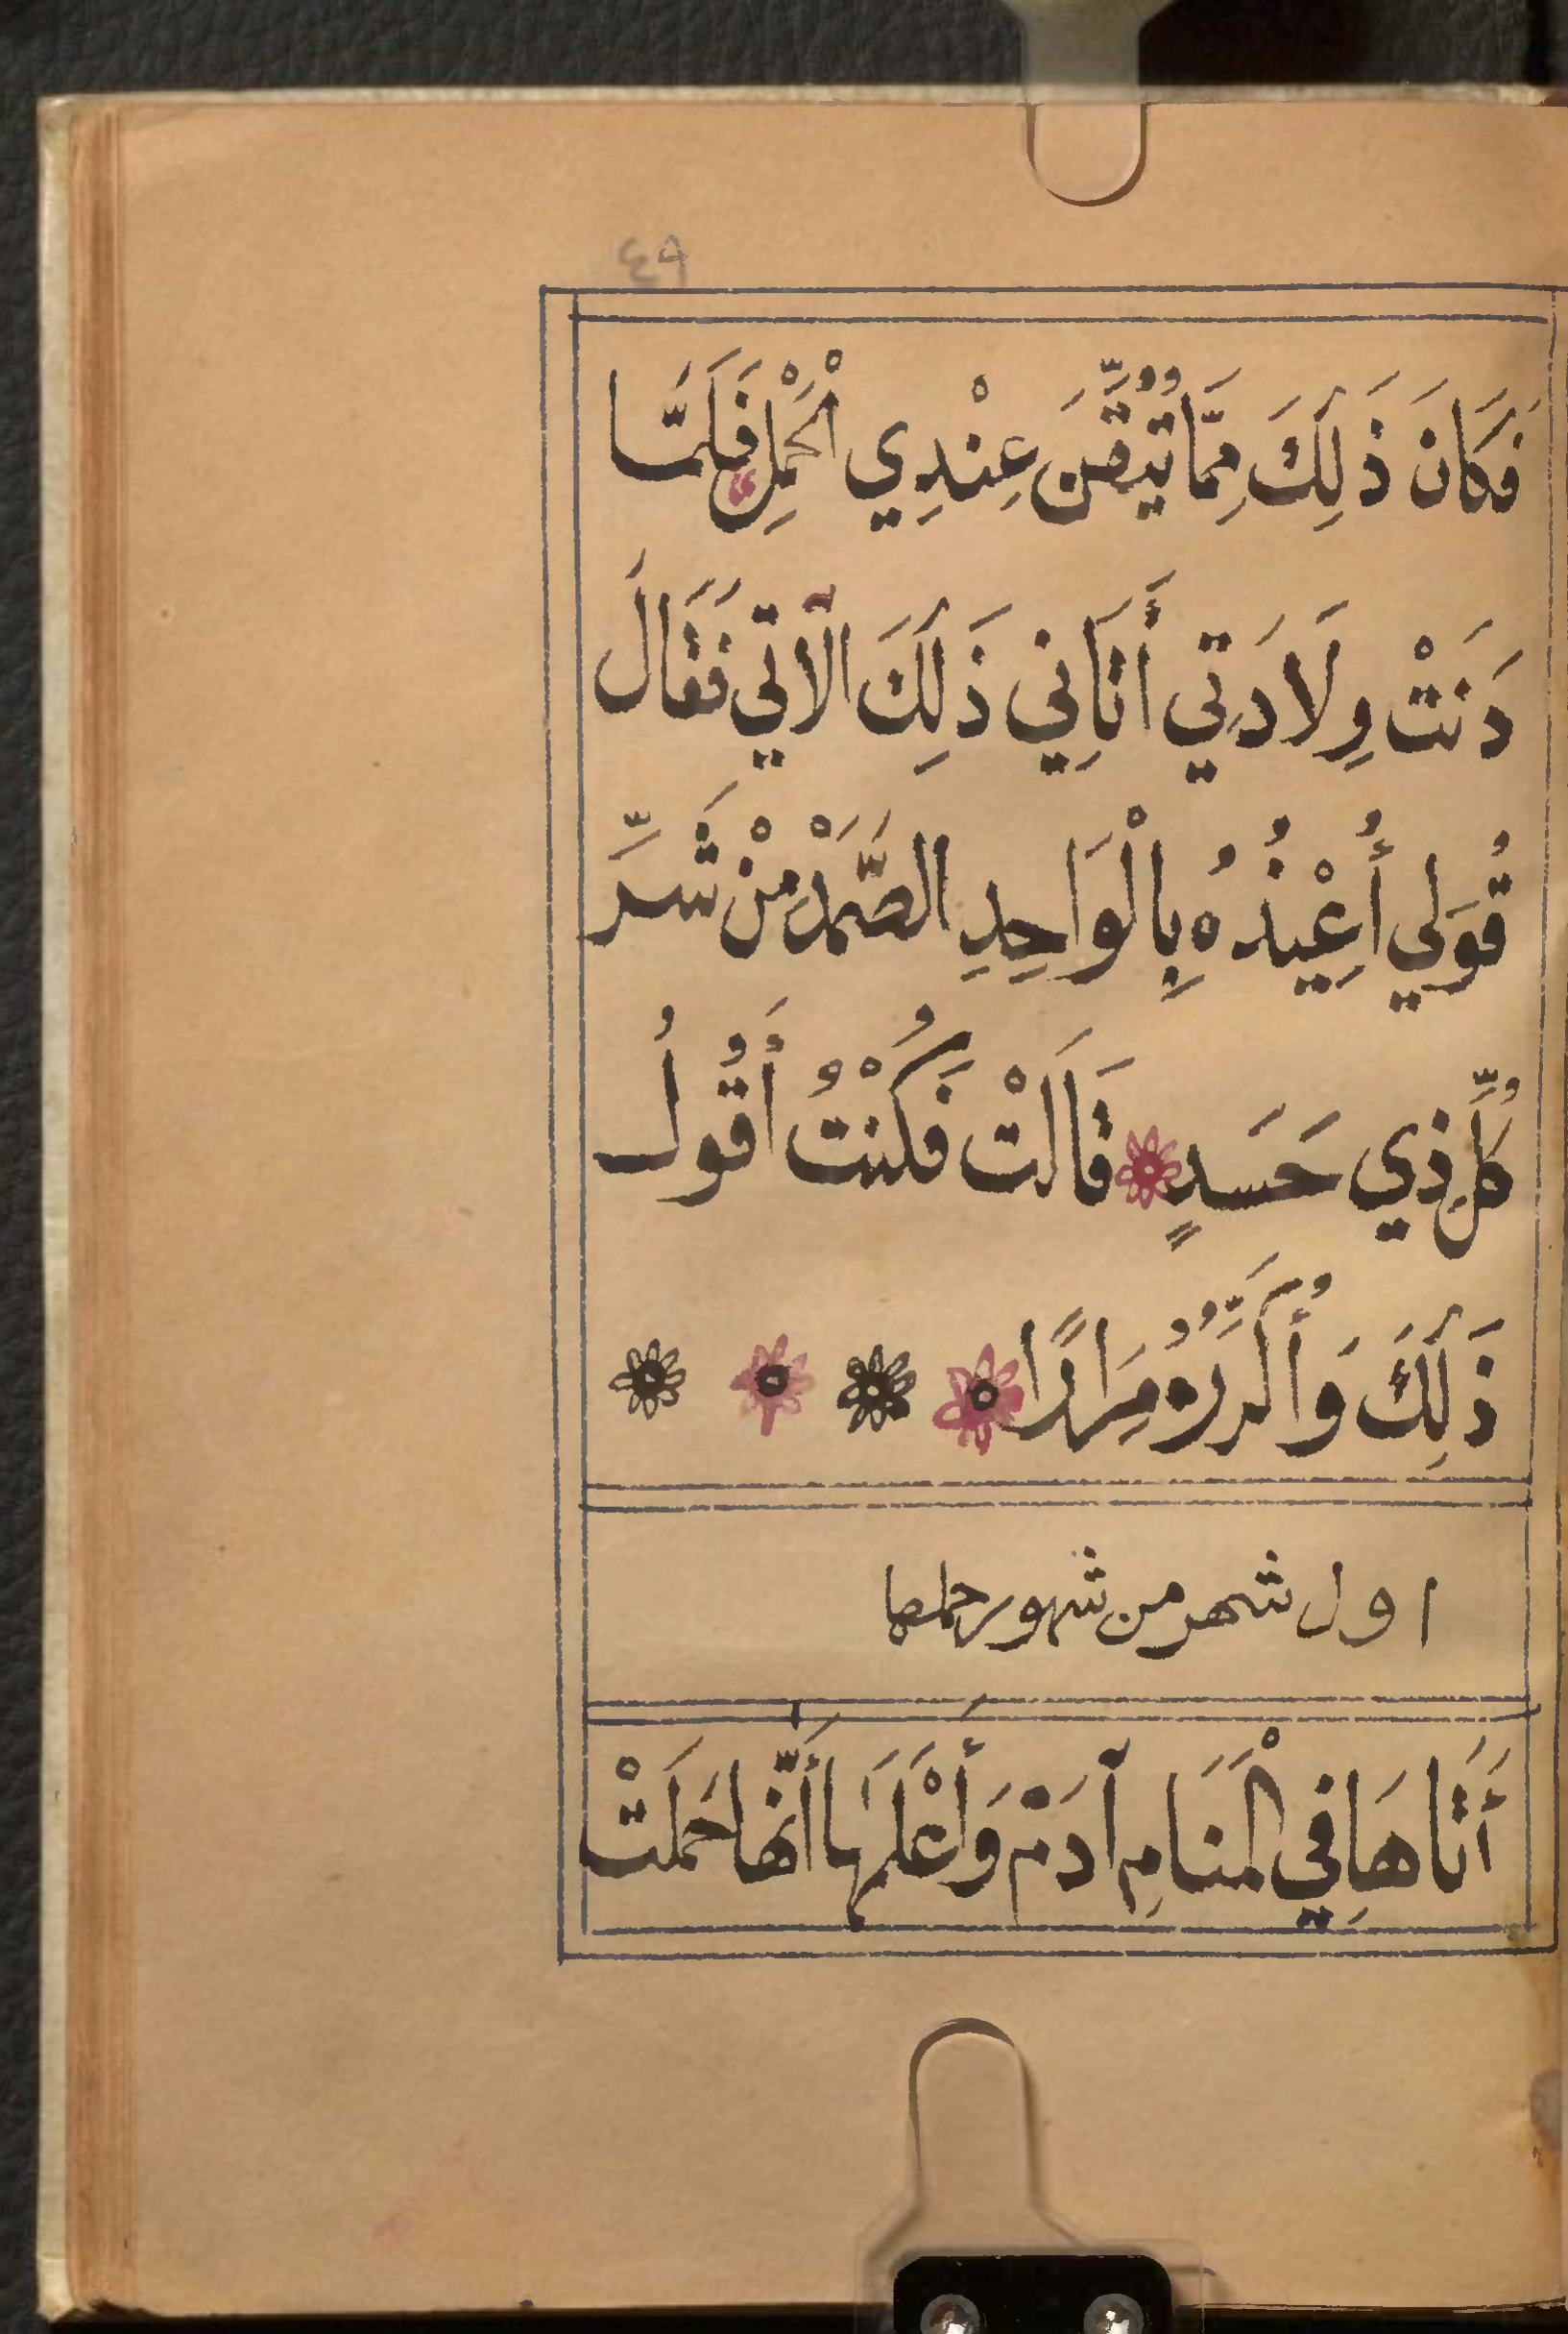 ٤٩
فَكَانَ ذَلِكَ مِمَّا تُيُقِّنَ عِنْدِي الْحَمْلِ فَلَمَّا
دَنَتْ وِلَادَتِي أَتَانِي ذَلِكَ الْآتِي فَقَالَ
قُوَلِي أُعِيْذُهُ بِالْوَاحِدِ الصَّمَدْ مِنْ شَرِّ
كُلِّ ذِي حَسَدٍ قَالَتْ فَكُنْتُ أَقُولُ
ذَلِكَ وَأُكَرِّرُهُ مِرَارًا
اول شهر من شهور حملها
أَتَاهَا فِي الْمَنَامِ آدَمْ وَأَعْلَمَهَا أَنَّهَا حَمَلَتْ